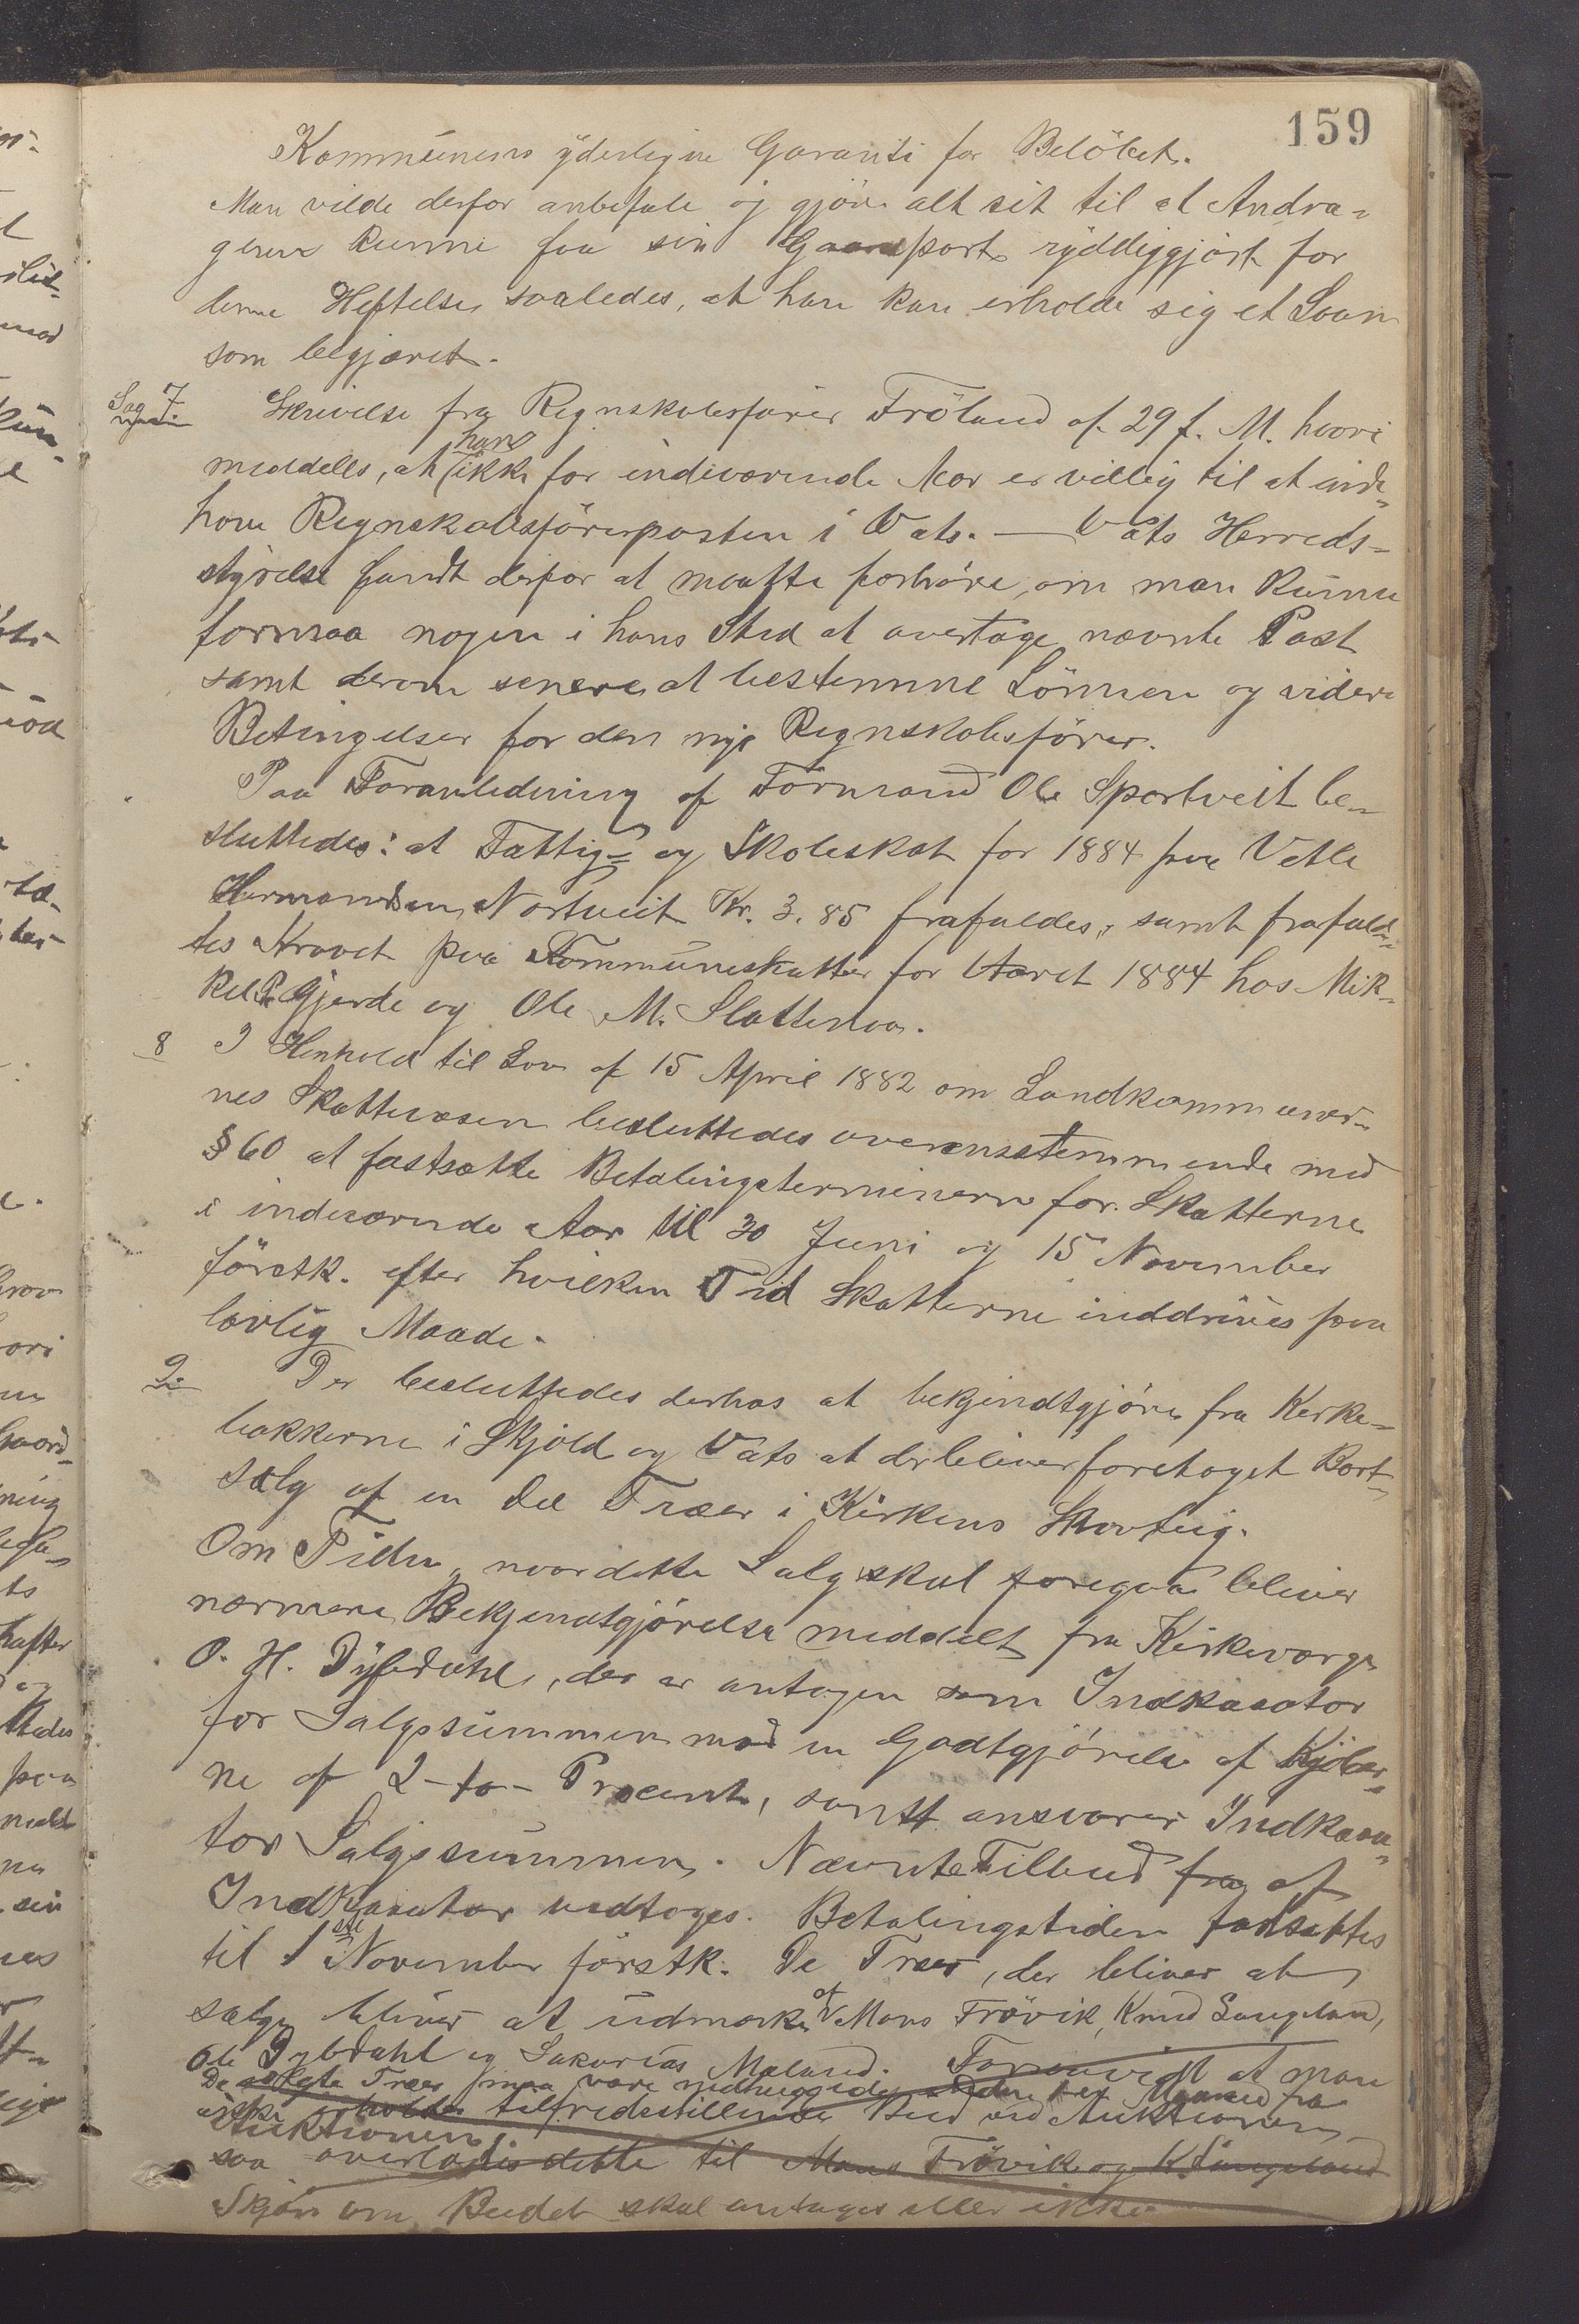 159
Kommunens yderligere Garanti for Belöbet.
Man vilde derfor anbefale og gjöre alt sit til at Andra-
geren kunne faa sin Gaardpart ryddiggjört for
denne Heftelse saaledes, at han kan erholde sig et Laan
som begjæret.
Sag 7. Skrivelse fra Regnskabsförer Fröland af 29 f. M. hvori
meddeles, at han ikke for indeværende Aar er villig til at inde-
have Regnskabsförerposten i Vats. — Vats Herreds-
styrelse fandt derfor at maatte forhöre, om man kunne
formaa nogen i hans Sted at overtage nævnte Post
samt derom senere at bestemme Lönnen og videre
Betingelser for den nye Regnskabsförer.
Paa Foranledning af Formand Ole Sportveit be-
sluttedes: at Fattig- og Skoleskat for 1884 paa Vetle
Hermandsen Nortveit Kr. 3.85 frafaldes, samt frafald-
tes Kravet paa Kommuneskatter for Aaret 1884 hos Mik-
kel P. Gjerde og Ole M. Slattenaa.
8 I Henhold til Lov af 15 April 1882 om Landkommuner-
nes Skattevæsen besluttedes overensstemmende med
§ 60 at fastsætte Betalingsterminerne for Skatterne
i indeværende Aar til 30 Juni og 15 November
förstk. efter hvilken Tid Skatterne inddrives paa
lovlig Maade.
9. Der besluttedes derhos at bekjendtgjöre fra Kirke-
bakkerne i Skjold og Vats at der bliver foretaget Bort-
salg af en del Træer i Kirkens Skovteig.
Om Tiden, naar dette Salg skal foregaa bliver
nærmere Bekjendtgjörelse meddelt fra Kirkeværge
O. H. Dybdahl, der er antagen som Indkasator
for Salgssummen mod en Godtgjörelse af Kjöber-
ne af 2 - to - Procent, samt ansvarer Indkasa-
tor Salgssummen. Nævnte Tilbud fra af
Indkasator vedtoges. Betalingstiden fastsattes
til 1ste November förstk. De Træer, der bliver at
sælge bliver at udmærke af Mons Frövik, Knud Saugeland,
Ole Dybdahl og Sakarias Maland. Forsaavidt at man
De solgte Træer maa være nedhuggede inden Maaned fra
ikke erholder tilfredsstillende Bud ved Auktionen
Auktionen.
saa overlades dette til Mons Frövik og K. Saugeland
Skjön om Budet skal antages eller ikke